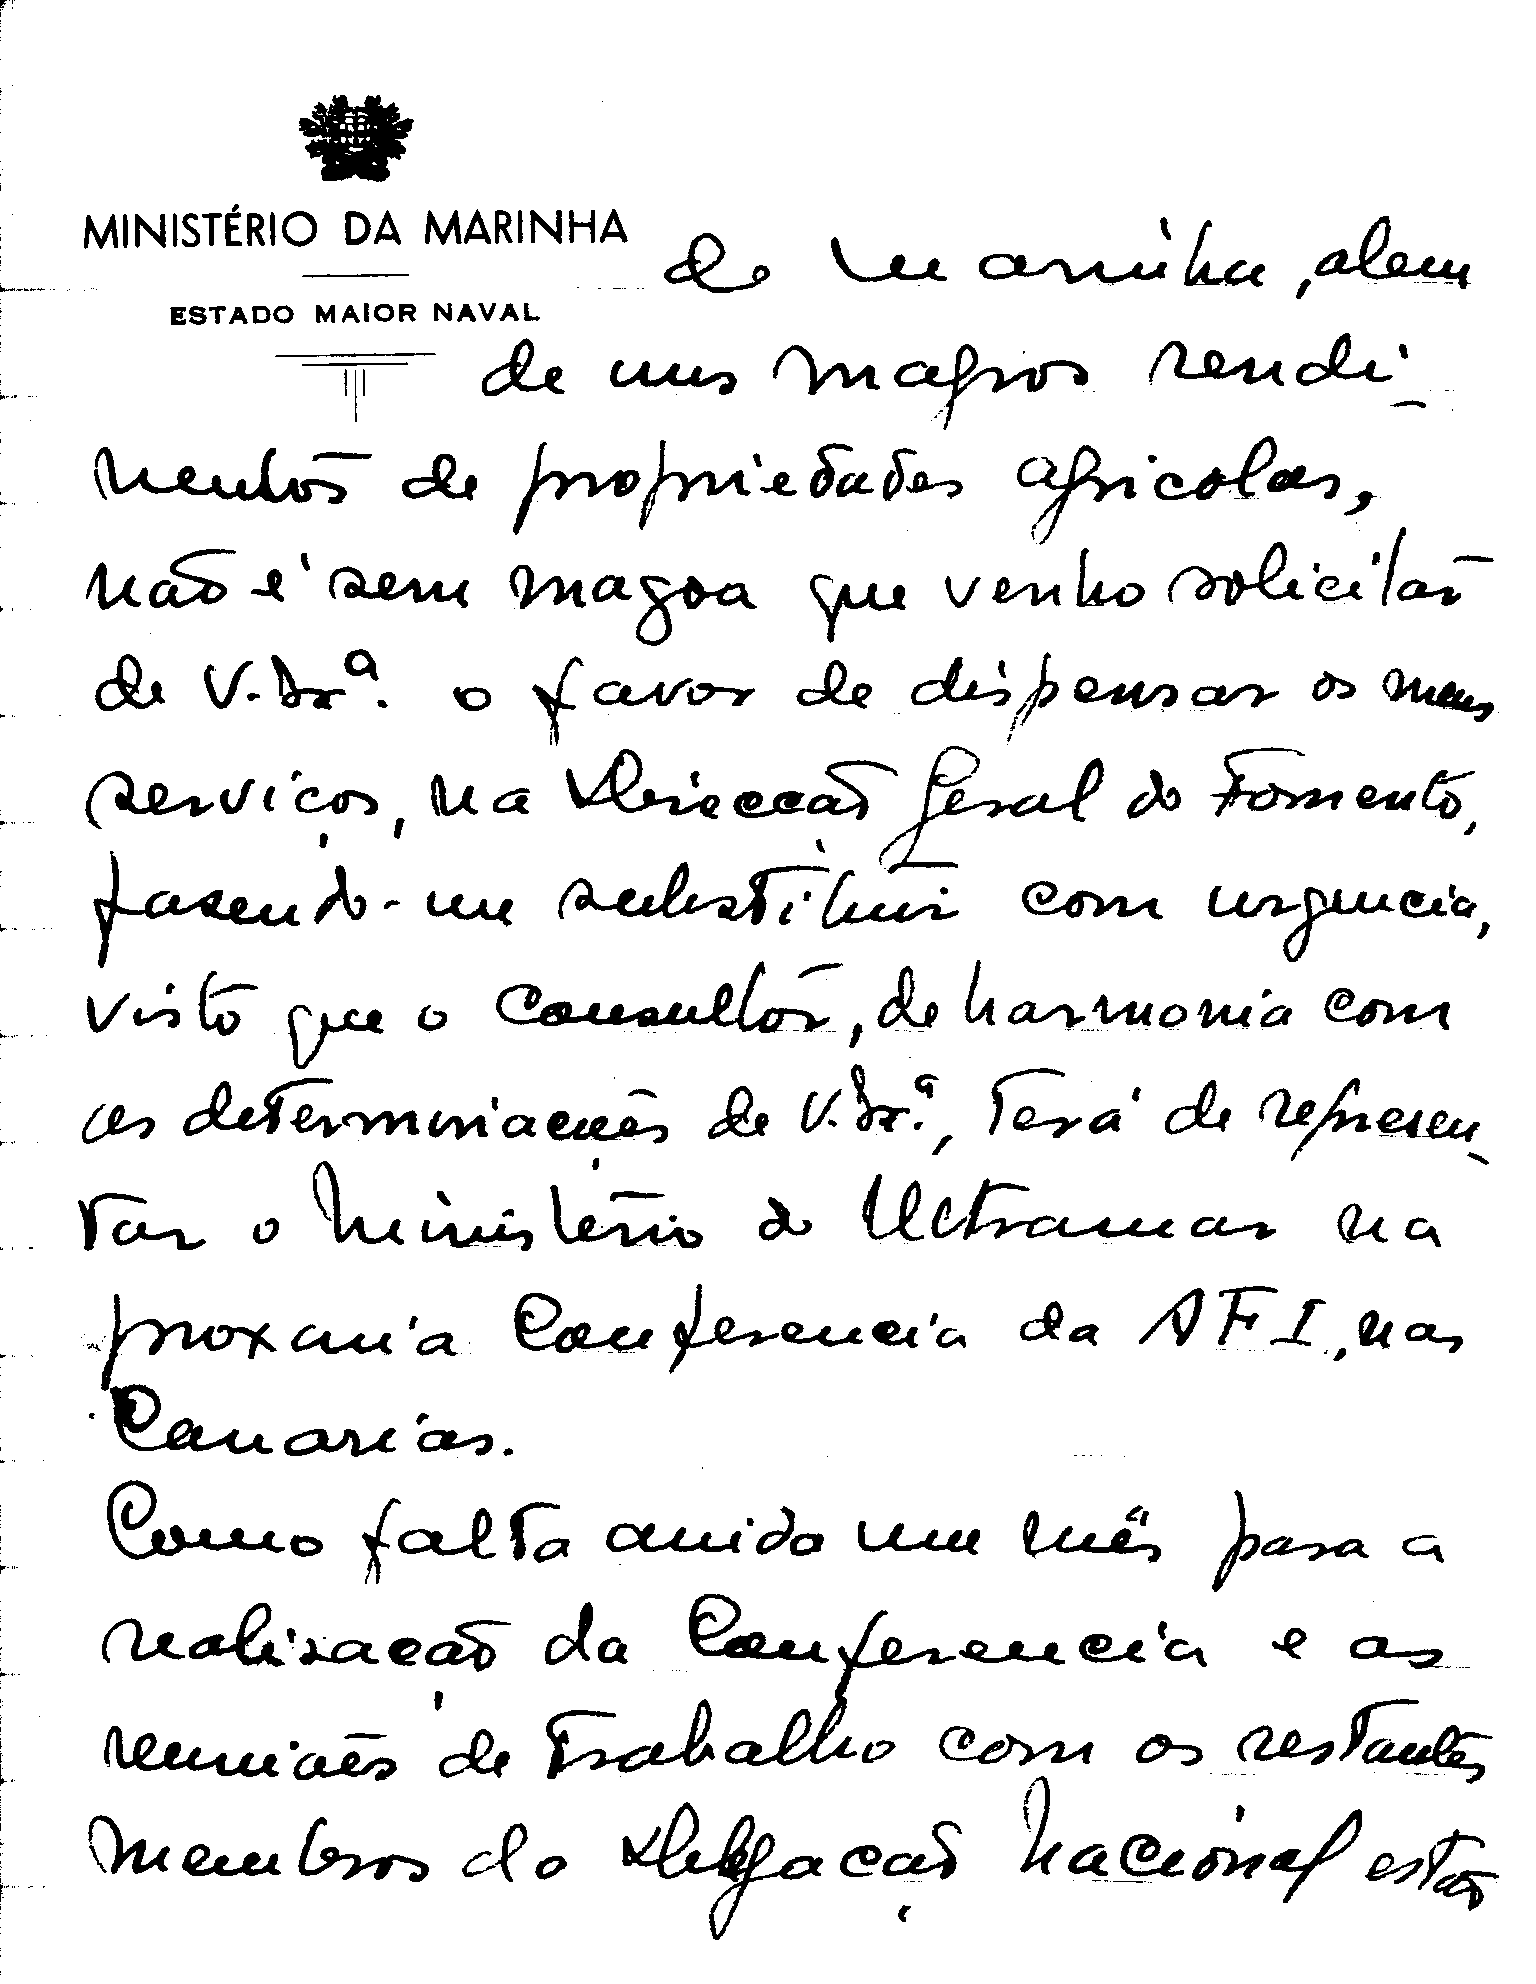 MINISTÉRIO DA MARINHA
ESTADO MAIOR NAVAL
de Marinha, alem
de uns magros rendi-
mentos de propriedades agricolas,
não é sem magoa que venho solicitar
de V. Exª. o favor de dispensar os meus
serviços, na Direcção Geral do Fomento,
fasendo-me substituir com urgencia,
visto que o Consultor, de harmonia com
as determinações de V. Exª., terá de represen-
tar o Ministério do Ultramar na
proxima Conferencia da AFI, nas
Canarias.
Como falta ainda um mês para a
realisação da Conferencia e as
reuniões de trabalho com os restantes
membros da Delegação Nacional estão